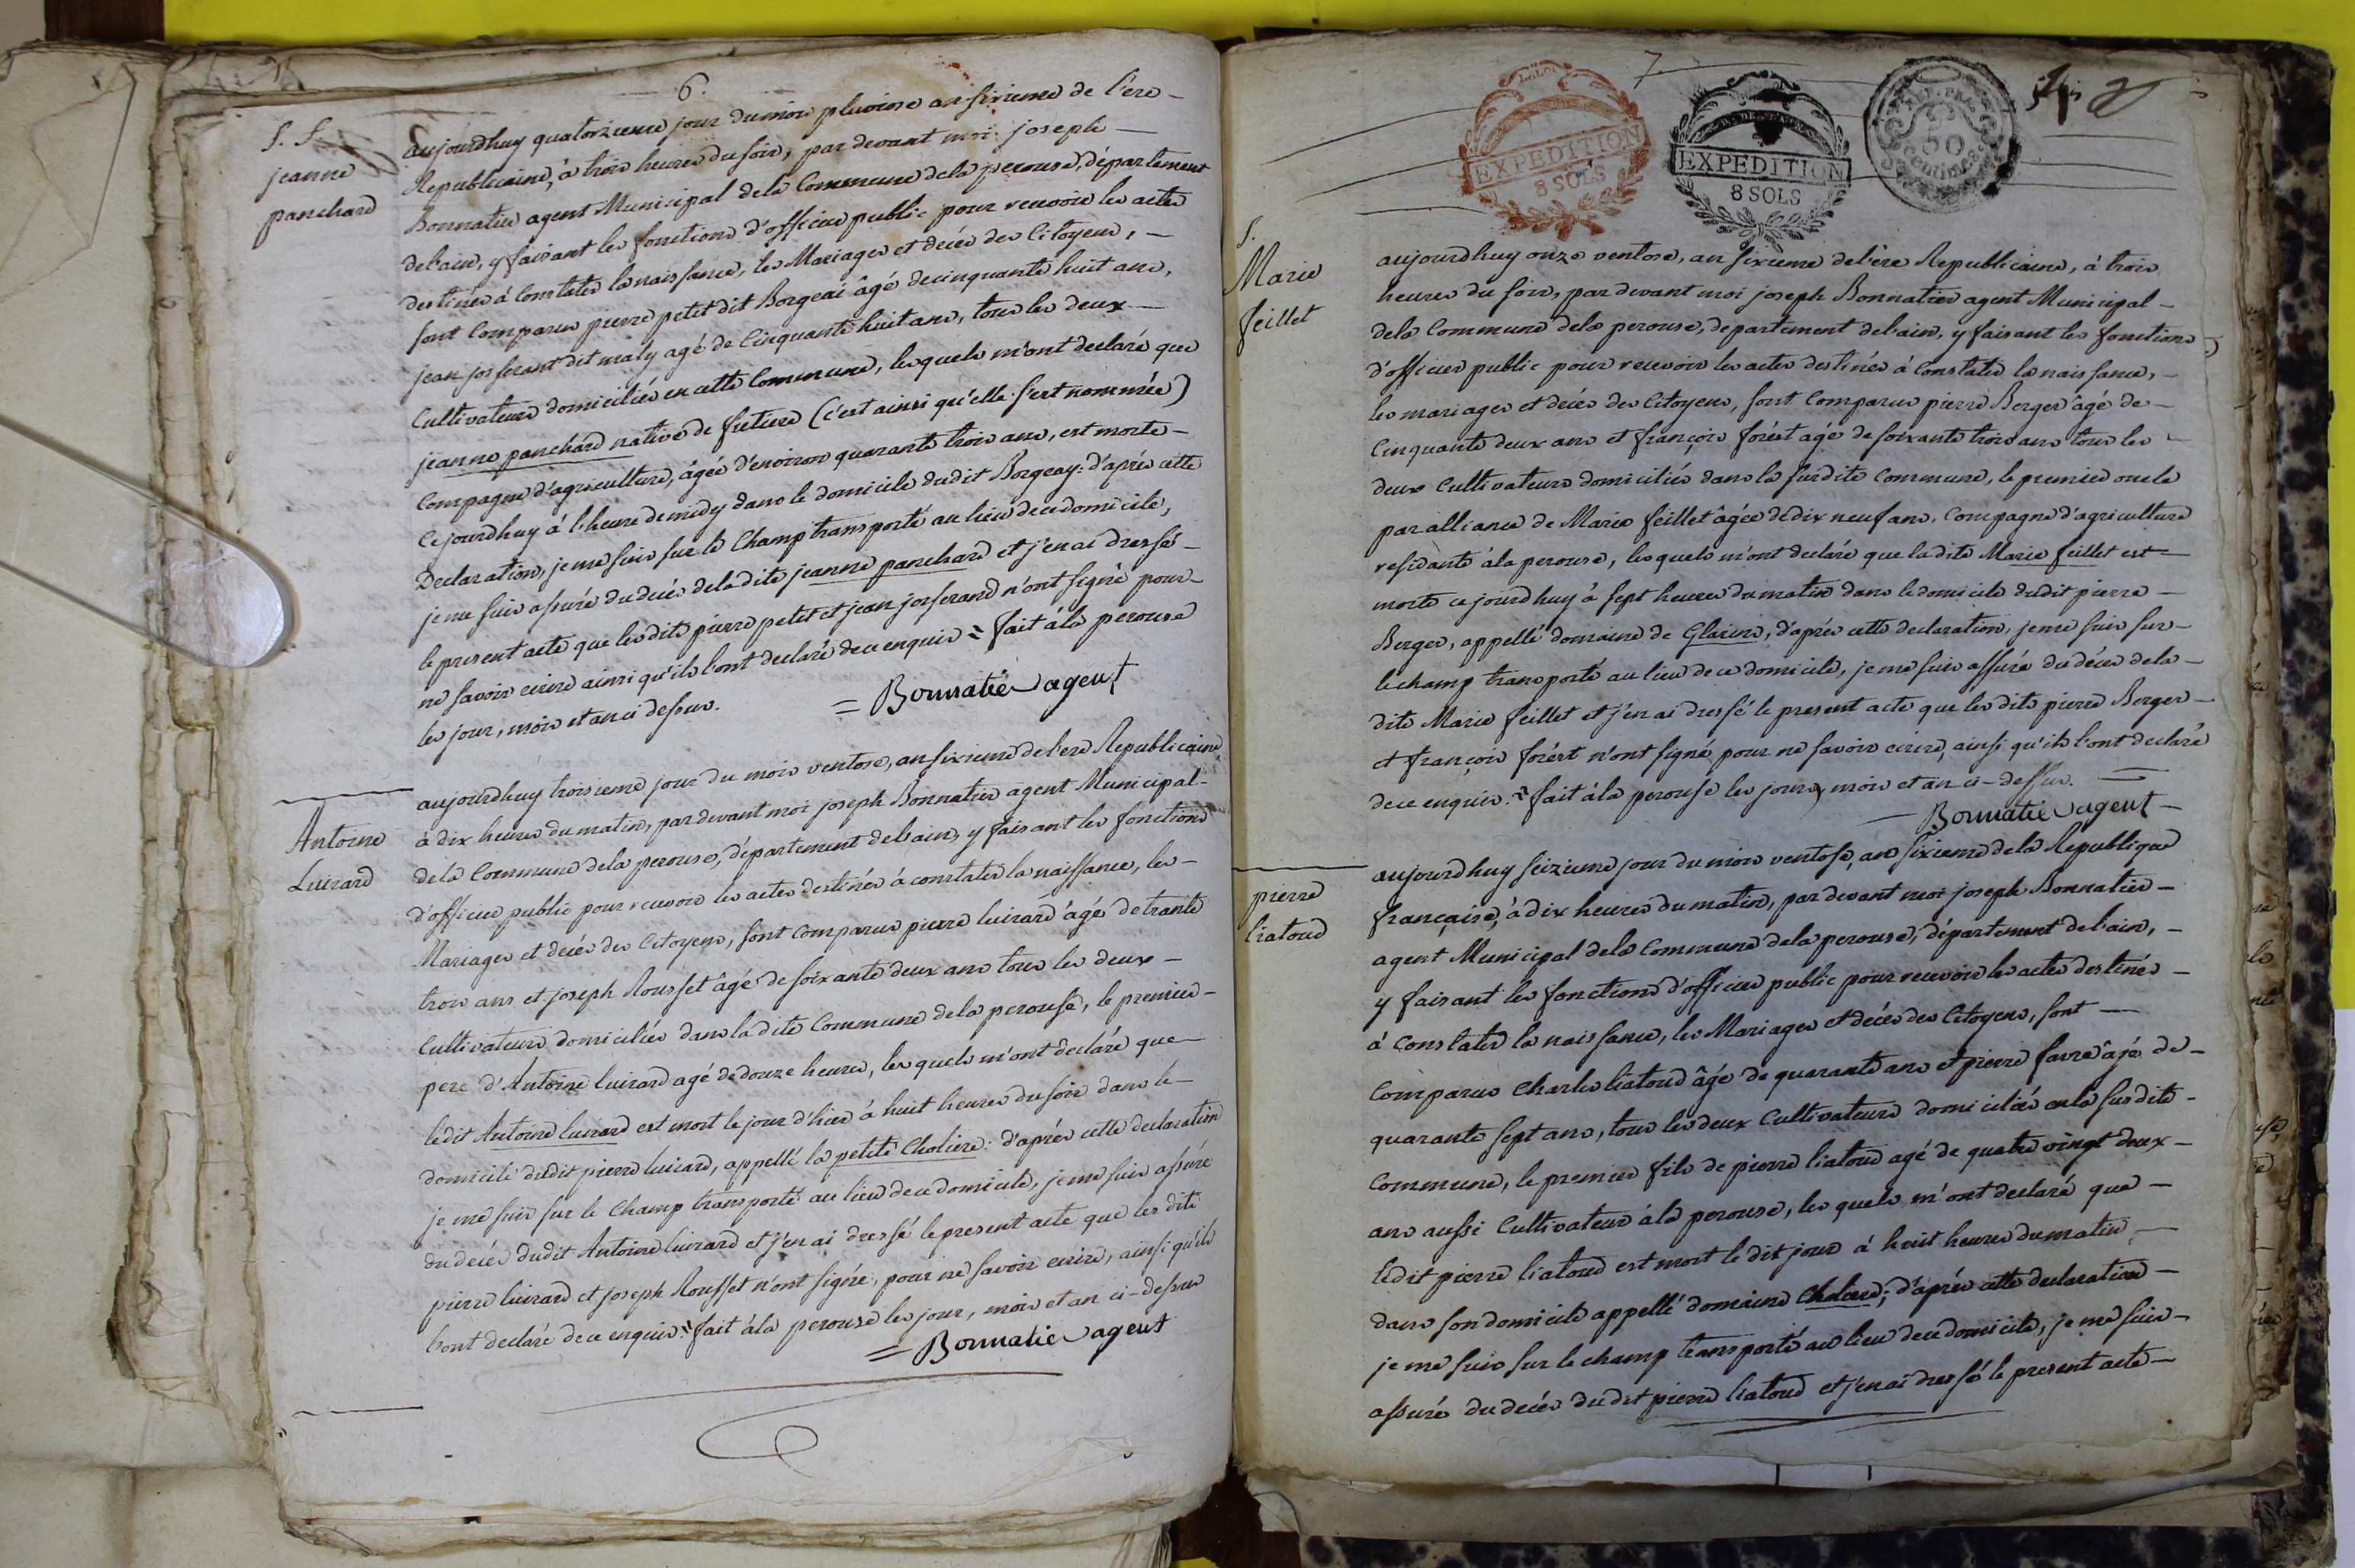 6.
S. S.
jeanne
panchard
aujourdhuy quatorzieme jour du mois pluviose an sixieme de l'ere
Republicaine, à trois heures du soir, par devant moi joseph
Bonnatier agent Municipal dela Commune dela perouse, département
del'ain, y faisant les fonctions d'officier public pour recevoir les actes
destinés à Constater la naissance, les Mariages et decès des Citoyens,
sont Comparus pierre petit dit Borgeai âgé de cinquante huit ans,
jean josserant dit maly agé de Cinquante huit ans, tous les deux
Cultivateurs domiciliés en cette Commune, lesquels m'ont declaré que
jeanne panchard native de (c'est ainsi qu'elle s'est nommée)
Compagne d'agriculture, âgée d'environ quarante trois ans, est morte
Cejourdhuy à l'heure de midy dans le domicile dudit Borgeay: d'après cette
Declaration, je me suis sur le Champ transporté au lieu de ce domicile,
je me suis assuré du decès deladite jeanne panchard et j'en ai dressé
le present acte que lesdits pierre petit et jean josserand n'ont signé pour
ne savoir ecrire ainsi qu'ils l'ont declaré de ce enquis = fait à la perouse
les jour, mois et an ci dessus.
= Bonnatier agent
Antoine
Luizard
aujourdhuy troisieme jour du mois ventose, an sixieme de l'ere Republicaine
à dix heures du matin, par devant moi joseph Bonnatier agent Municipal
dela Commune dela perouse, département del'ain, y faisant les fonctions
d'officier public pour recevoir les actes destinés à constater la naissance, les
Mariages et decès des Citoyens, sont Comparus pierre luizard âgé de trante
trois ans et joseph Rousset âgé de soixante deux ans tous les deux
Cultivateurs domiciliés dans ladite Commune dela perouse, le premier
pere d'Antoine luizard agé de douze heures, lesquels m'ont declaré que
ledit Antoine luizard est mort le jour d'hier à huit heures du soir dans le
domicile dudit pierre luizard, appellé la petite Choliere: d'après cette declaration
je me suis sur le Champ transporté au lieu de ce domicile, je me suis assuré
du decès dudit Antoine luizard et j'en ai dressé le present acte que lesdits
pierre luizard et joseph Rousset n'ont signé, pour ne savoir ecrire, ainsi qu'ils
l'ont declaré de ce enquis = fait à la perouse les jour, mois et an ci-dessus
= Bonnatier agent
7
EXPEDITION
8 SOLS
EXPEDITION
8 SOLS
50
centimes
S.
Marie
feillet
aujourdhuy onze ventose, an sixieme de l'ere Republicaine, à trois
heures du soir, par devant moi joseph Bonnatier agent Municipal
dela Commune dela perouse, departement del'ain, y faisant les fonctions
d'officier public pour recevoir les actes destinés à Constater la naissance,
les mariages et decès des Citoyens, sont Comparus pierre Berger âgé de
Cinquante deux ans et françois forêst agé de soixante trois ans tous les
deux Cultivateurs domiciliés dans la susdite Commune, le premier oncle
par alliance de Marie feillet âgée de dix neuf ans, Compagne d'agriculture
residante à la perouse, lesquels m'ont declaré que ladite Marie feillet est
morte cejourdhuy à sept heures du matin dans le domicile dudit pierre
Berger, appellé domaine de Glarine, d'après cette declaration, je me suis sur
le champ transporté au lieu de ce domicile, je me suis assuré du décès dela
dite Marie feillet et j'en ai dressé le present acte que lesdits pierre Berger
et françois forêst n'ont signé, pour ne savoir ecrire, ainsi qu'ils l'ont declaré
de ce enquis. = fait à la perouse les jours, mois et an ci-dessus.
Bonnatier agent
pierre
liatoud
aujourdhuy seizieme jour du mois ventose, an sixieme de la Republique
française, à dix heures du matin, par devant moi joseph Bonnatier
agent Municipal dela Commune dela perouse, département de l'ain,
y faisant les fonctions d'officier public pour recevoir les actes destinés
à Constater la naissance, les Mariages et decès des Citoyens, sont
Comparus Charles liatoud âgé de quarante ans et pierre favre âgé de
quarante sept ans, tous les deux Cultivateurs domiciliés en la susdite
Commune, le premier fils de pierre liatoud agé de quatre vingt deux
ans aussi Cultivateur à la perouse, lesquels m'ont declaré que
ledit pierre liatoud est mort le dit jour à huit heures du matin
dans son domicile appellé domaine Choliere; d'après cette declaration
je me suis sur le champ transporté au lieu de ce domicile, je me suis
assuré du decès dudit pierre liatoud et j'en ai dressé le present acte